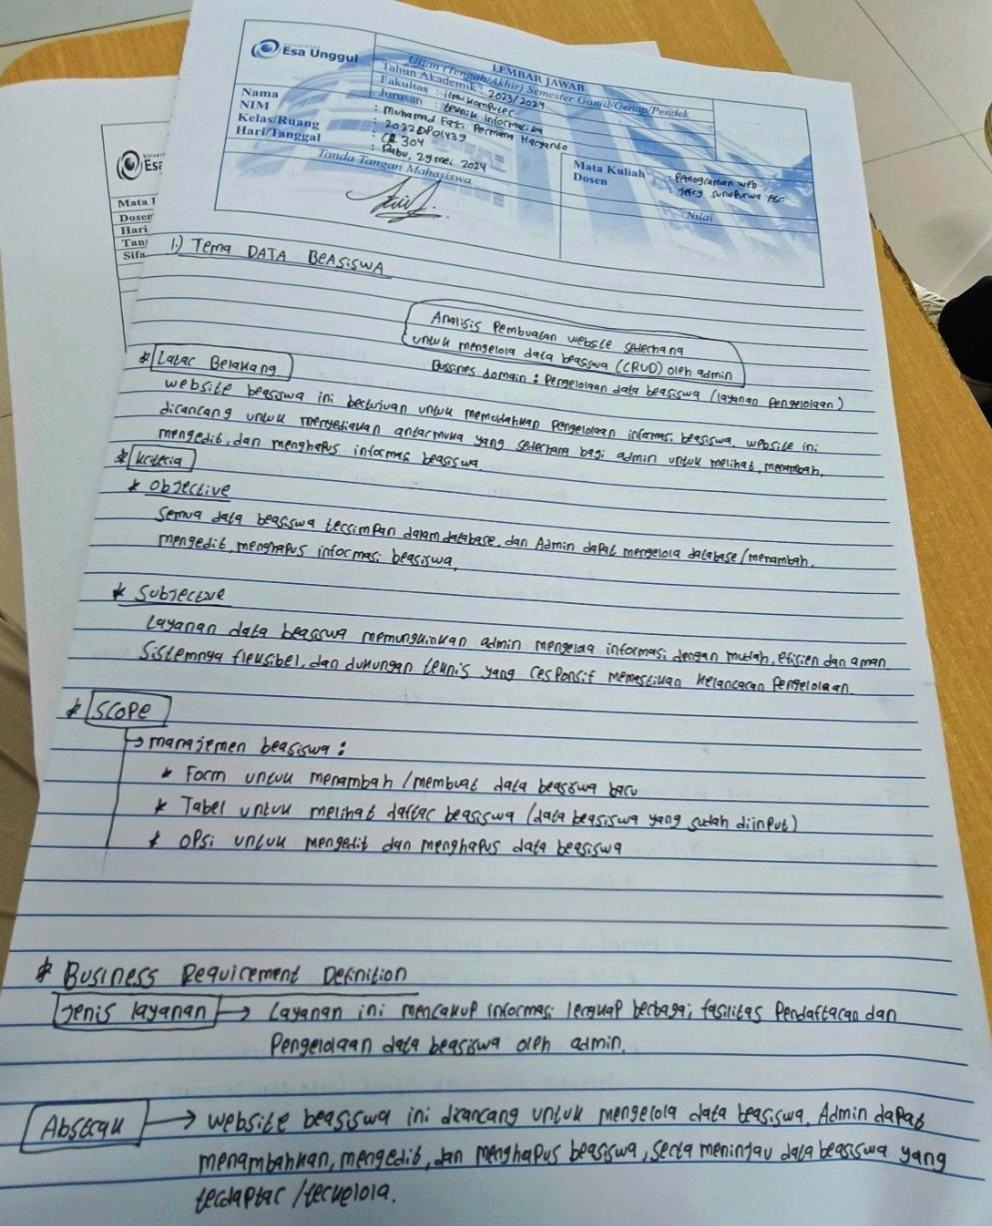 Esa Unggul
LEMBAR JAWAB
Ujian (Tengah/Akhir) Semester Ganjil/Genap/Pendek
Tahun Akademik : 2023/2024
Fakultas : ilmu komputer
Jurusan : teknik informatika
Nama : Muhamad Fajri Permana Haryanto
NIM
Kelas/Ruang : CR 304
Hari/Tanggal : Rabu, 29 mei 2024
Tanda Tangan Mahasiswa
Mata Kuliah : Pemograman web
Dosen
Nilai
Esa
Mata
Dosen
Hari
Tan
Sifa
1.) Tema DATA BEASISWA
Analisis Pembuatan website sederhana
untuk mengelola data beasiswa (CRUD) oleh admin
Bussines domain : Pengelolaan data beasiswa (layanan Pengelolaan)
* Latar Belakang
website beasiswa ini bertujuan untuk memudahkan pengelolaan informasi beasiswa. website ini
dirancang untuk menyediakan antarmuka yang sederhana bagi admin untuk melihat, menambah,
mengedit, dan menghapus informasi beasiswa
* kriteria
* Objective
Semua data beasiswa tersimpan dalam database, dan Admin dapat mengelola database/menambah,
mengedit, menghapus informasi beasiswa.
* Subjective
Layanan data beasiswa memungkinkan admin mengelola informasi dengan mudah, efisien dan aman
Sistemnya fleksibel, dan dukungan teknis yang responsif memastikan kelancaran Pengelolaan.
* SCOPE
→ manajemen beasiswa :
* Form untuk menambah / membuat data beasiswa baru
* Tabel untuk melihat daftar beasiswa (data beasiswa yang sudah diinput)
* OPsi untuk mengedit dan menghapus data beasiswa
* Business Requirement Definition
Jenis layanan → Layanan ini mencakup informasi lengkap berbagai fasilitas Pendaftaran dan
Pengelolaan data beasiswa oleh admin.
Abstrak → website beasiswa ini dirancang untuk mengelola data beasiswa. Admin dapat
menambahkan, mengedit, dan menghapus beasiswa, serta meninjau data beasiswa yang
terdaptar / terkelola.